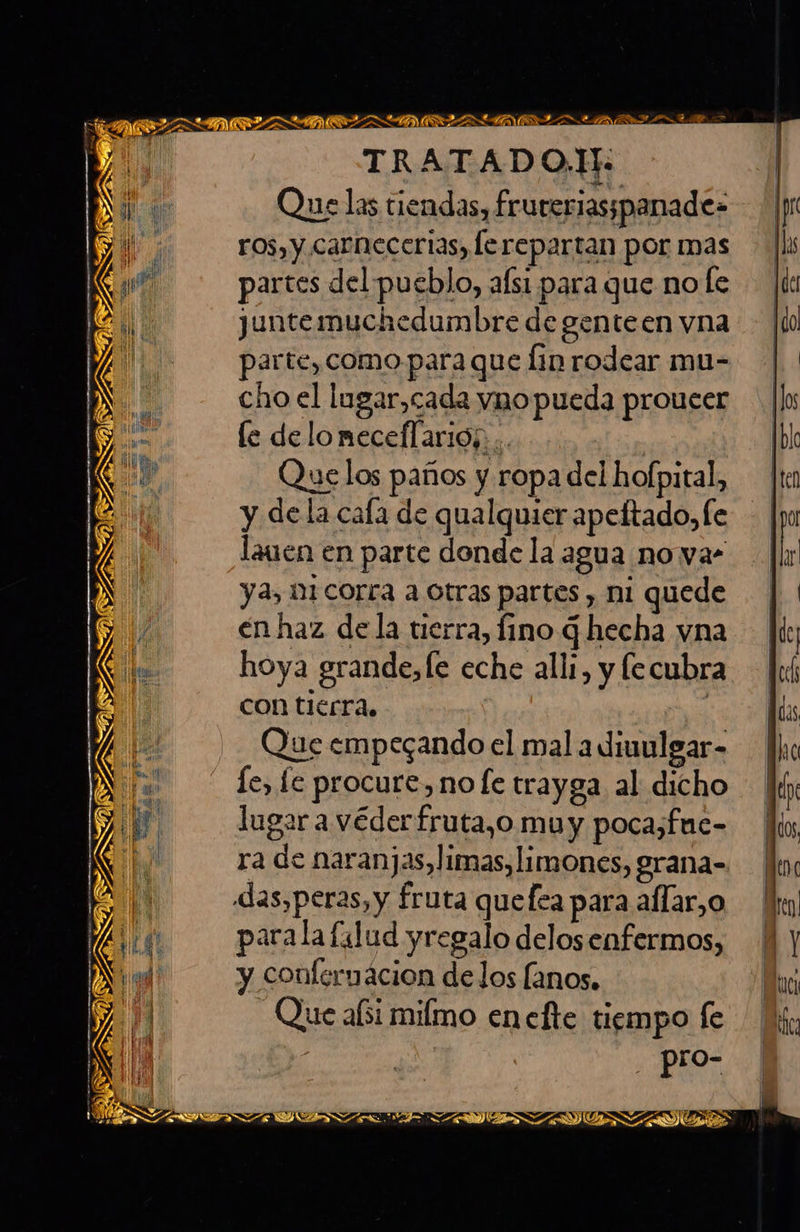 TRATADO.II.
Que las tiendas, fruterias;panade-
ros,y carnecerias, ſe repartan por mas
partes del pueblo, aſsi para que no ſe
junte muchedumbre de gente en vna
parte, como para que ſin rodear mu-
cho el lugar,cada vno pueda proueer
ſe de lo neceſſario;
Que los paños y ropa del hoſpital,
y de la caſa de qualquier apeſtado, ſe
lauen en parte donde la agua no va-
ya, ni corra a otras partes, ni quede
en haz de la tierra, ſino q̃ hecha vna
hoya grande, ſe eche alli, y ſe cubra
con tierra.
Que empeçando el mal a diuulgar-
ſe, ſe procure, no ſe trayga al dicho
lugar a vẽder fruta,o muy poca,fue-
ra de naranjas,limas,limones, grana-
das,peras,y fruta que ſea para aſſar,o
para la ſalud y regalo de los enfermos,
y conſeruacion de los ſanos.
Que aſsi miſmo en eſte tiempo ſe
pro-